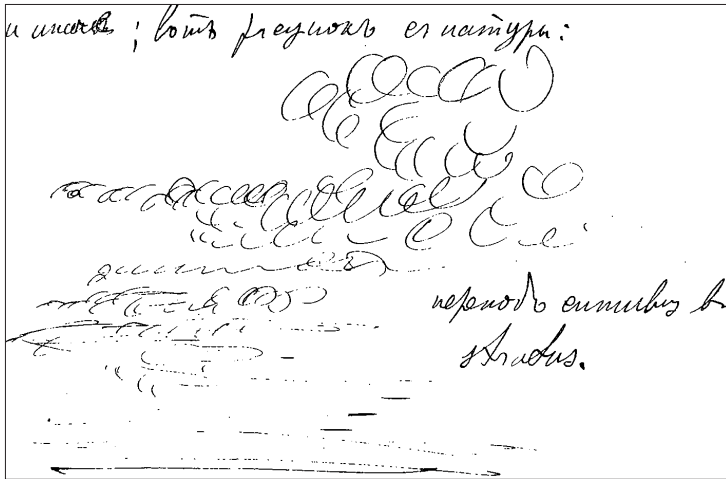 ; вотъ рисунокъ съ натуры:
переходъ cumulus въ
stratus.